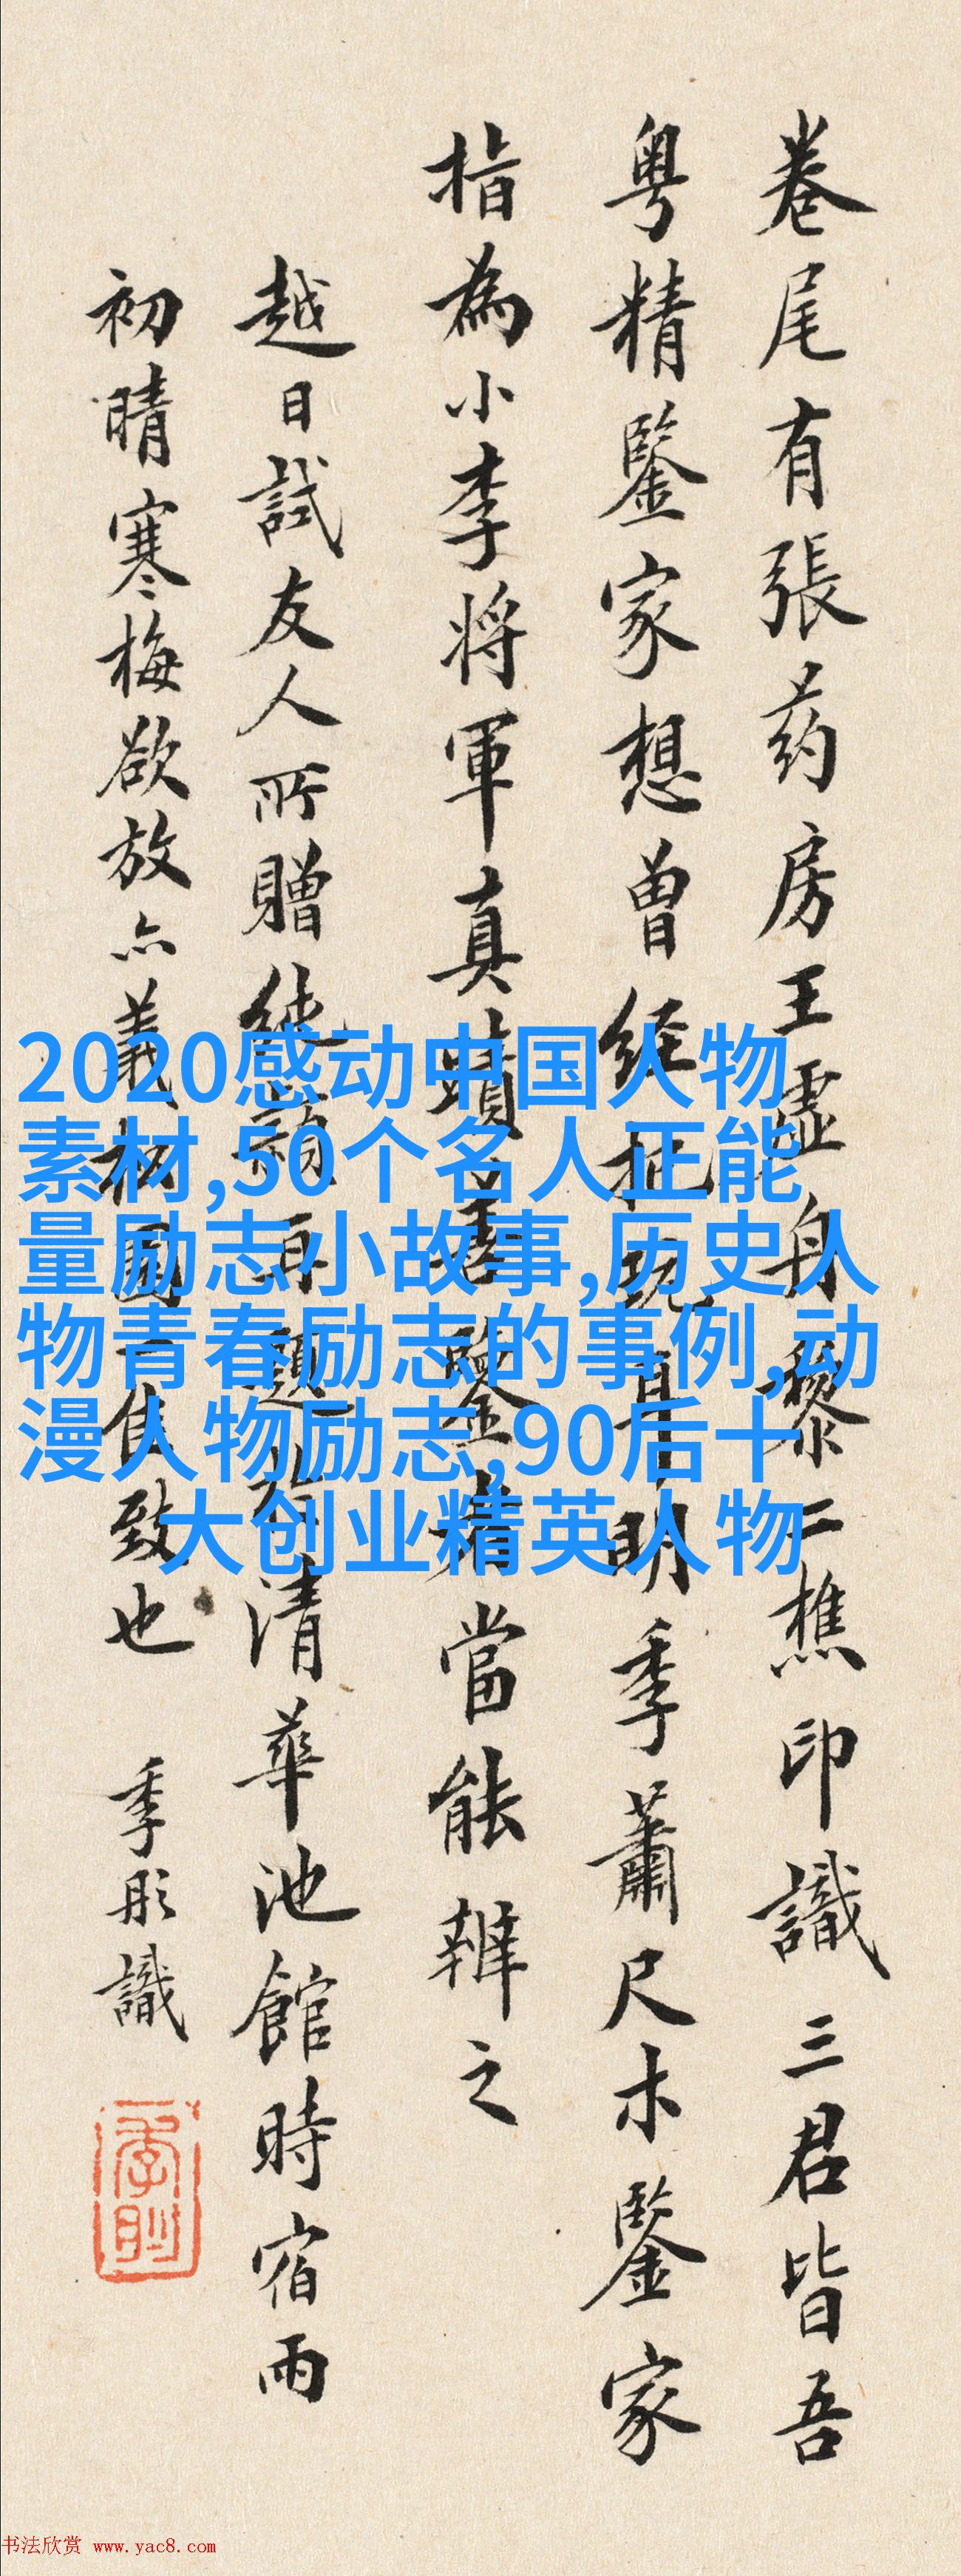 卷尾有張药房王虚舟黎二樵印識三君皆吾
粤精鑒家想曾經玩耳明季蕭尺木鑒家
指為小李将軍真蹟善鑒者當能辨之
越日試友人所贈再題於清華池館時宿雨
初晴寒梅欲放亦義園一佳致也 季彤識
2020感动中国人物
素材,50个名人正能
量励志小故事,历史人
物青春励志的事例,动
漫人物励志,90后十
大创业精英人物
书法欣赏 www.yac8.com